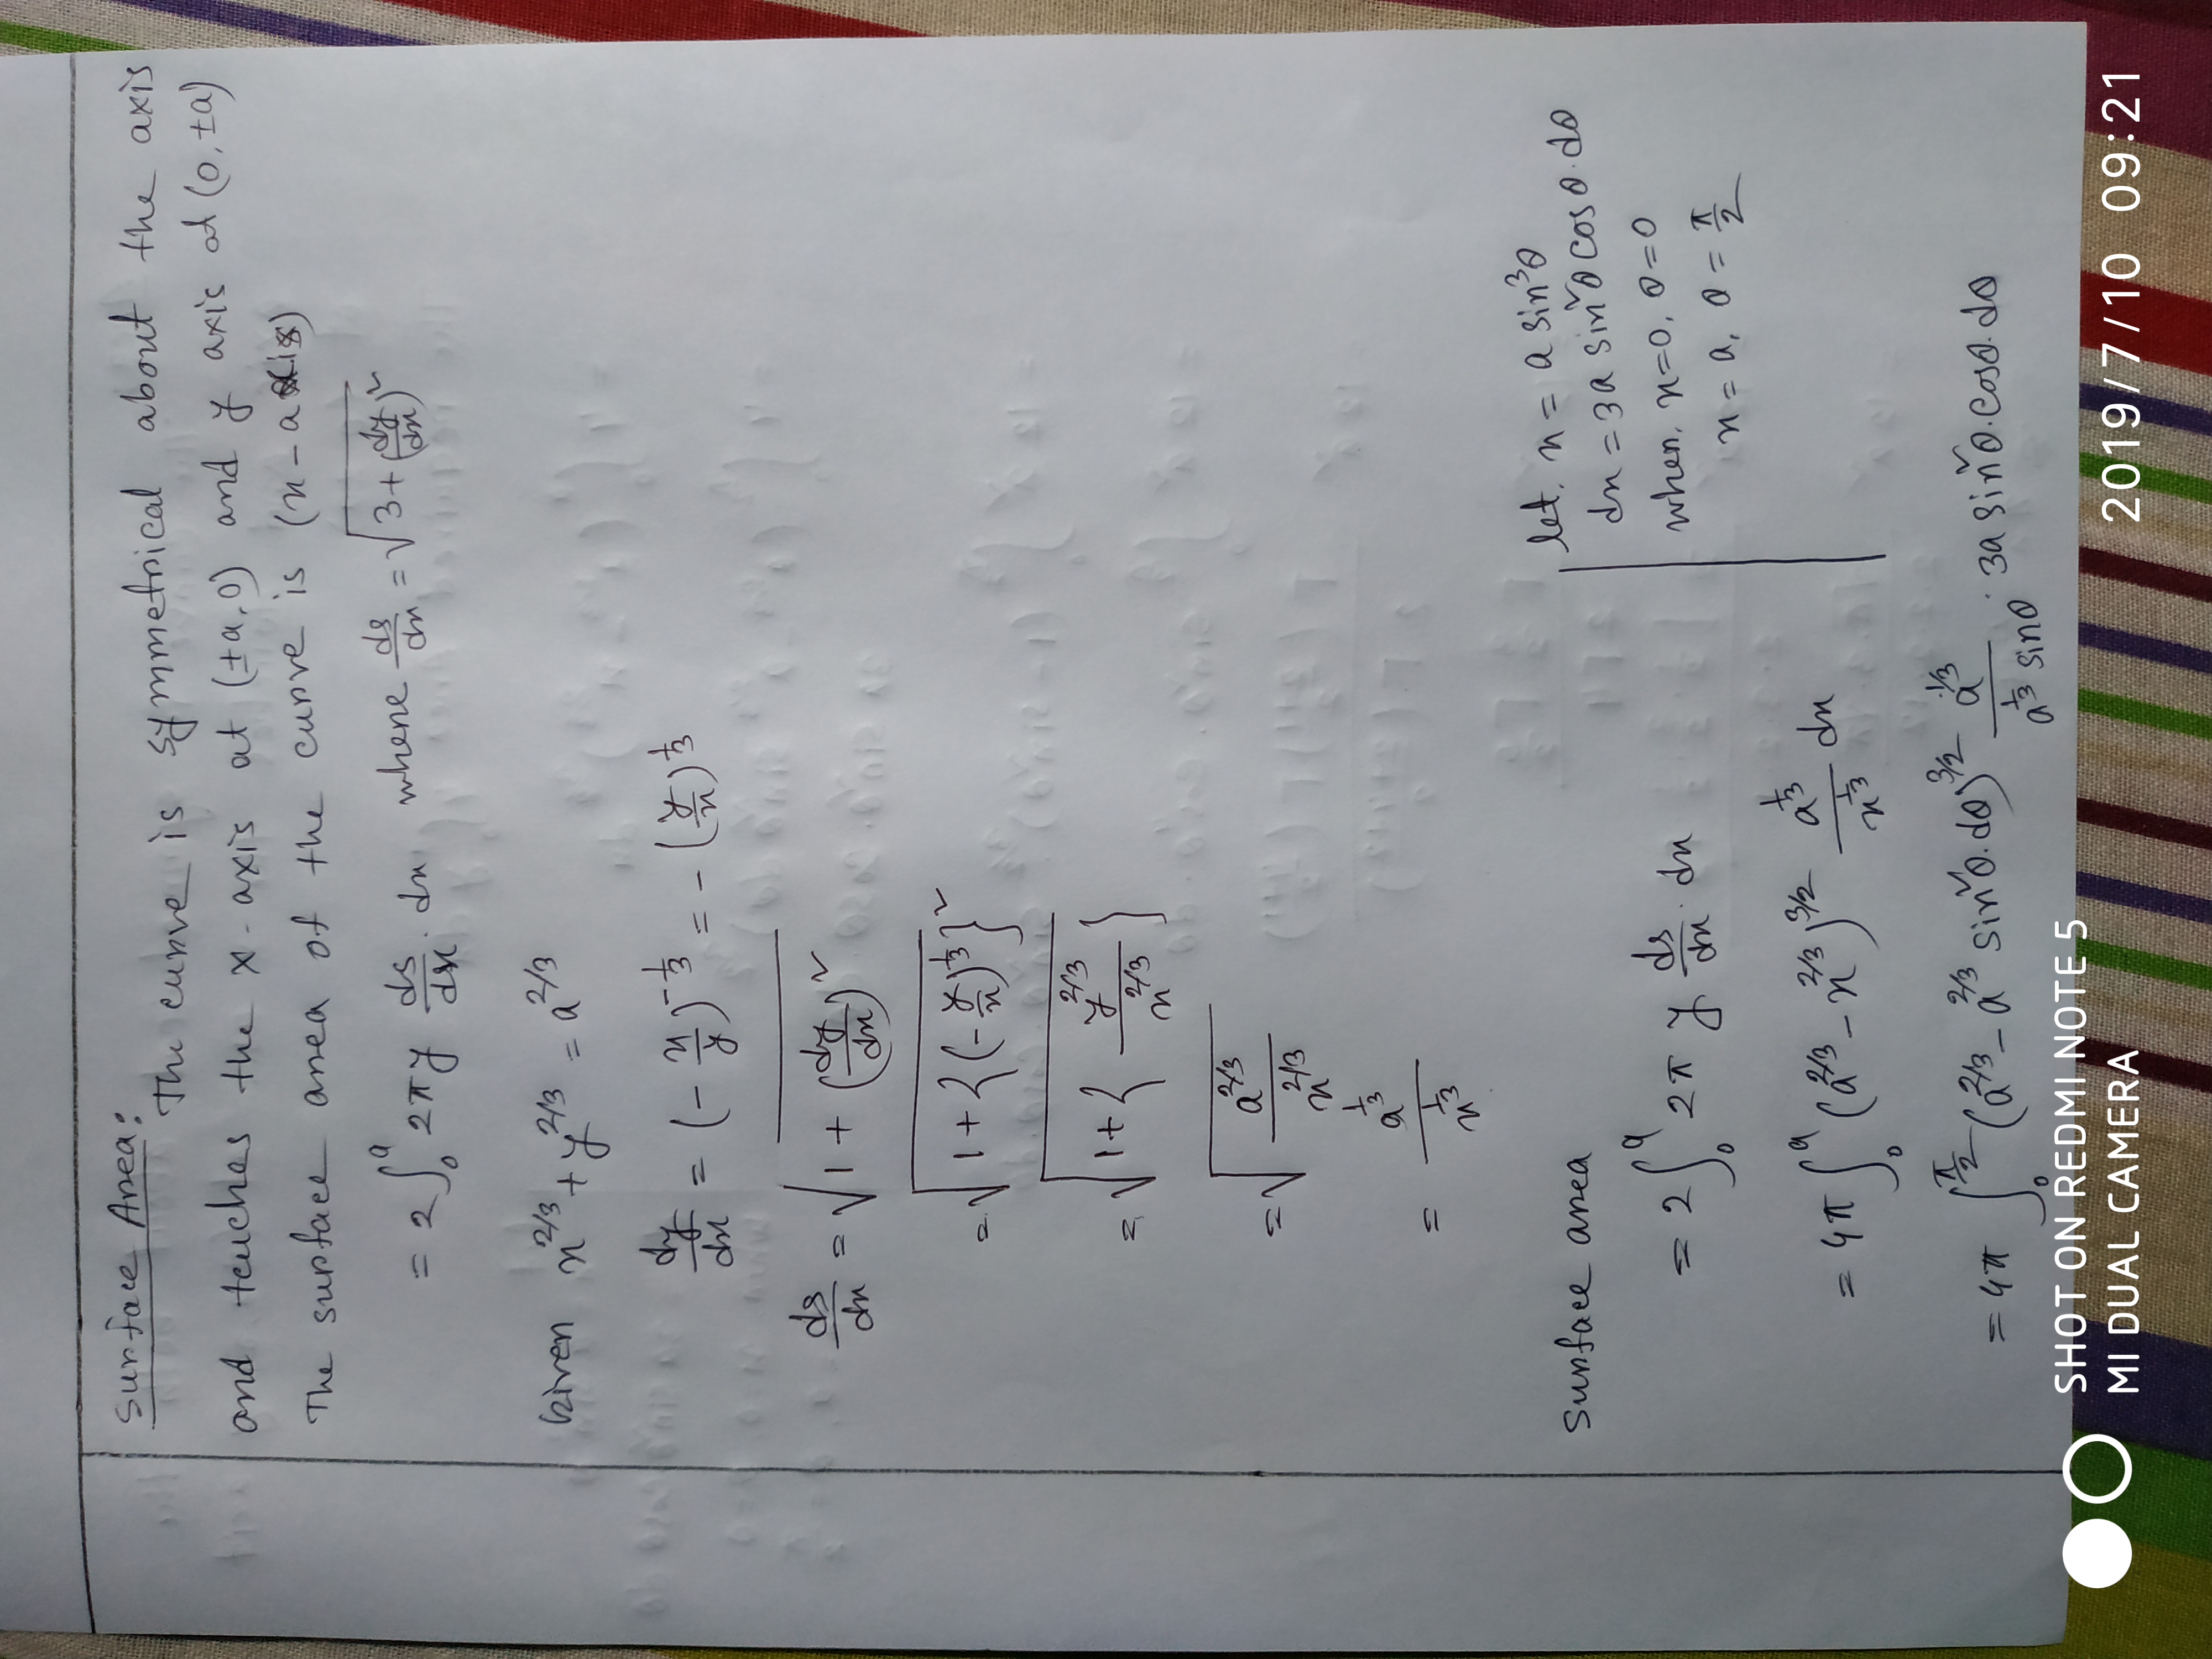 Surface Area:
The curve is symmetrical about the axis
and teuches the x-axis at (±a,0) and y axis at (0,±a)
The surface area of the curve is (x-axis)
= 2∫₀ᵃ 2πy ds/dx · dx where ds/dx = √(3+(dy/dx)²)
Given x^2/3 + y^2/3 = a^2/3
dy/dx = (- x/y)^-1/3 = - (y/x)^1/3
ds/dx = √(1 + (dy/dx)²)
= √(1+{(-y/x)^1/3}²)
= √(1+{y^2/3 / x^2/3})
= √(a^2/3 / x^2/3)
= a^1/3 / x^1/3
Surface area
= 2∫₀ᵃ 2π y ds/dx · dx
= 4π∫₀ᵃ (a^2/3 - x^2/3)^3/2 a^1/3 / x^1/3 dx
let, x = a sin³θ
dx = 3a sin²θ cosθ·dθ
when, x=0, θ=0
x = a, θ = π/2
= 4π ∫₀^π/2 (a^2/3 - a^2/3 sin²θ·dθ)^3/2 a^1/3 / a^1/3 sinθ · 3a sin²θ·cosθ·dθ
SHOT ON REDMI NOTE 5
MI DUAL CAMERA
2019/7/10 09:21